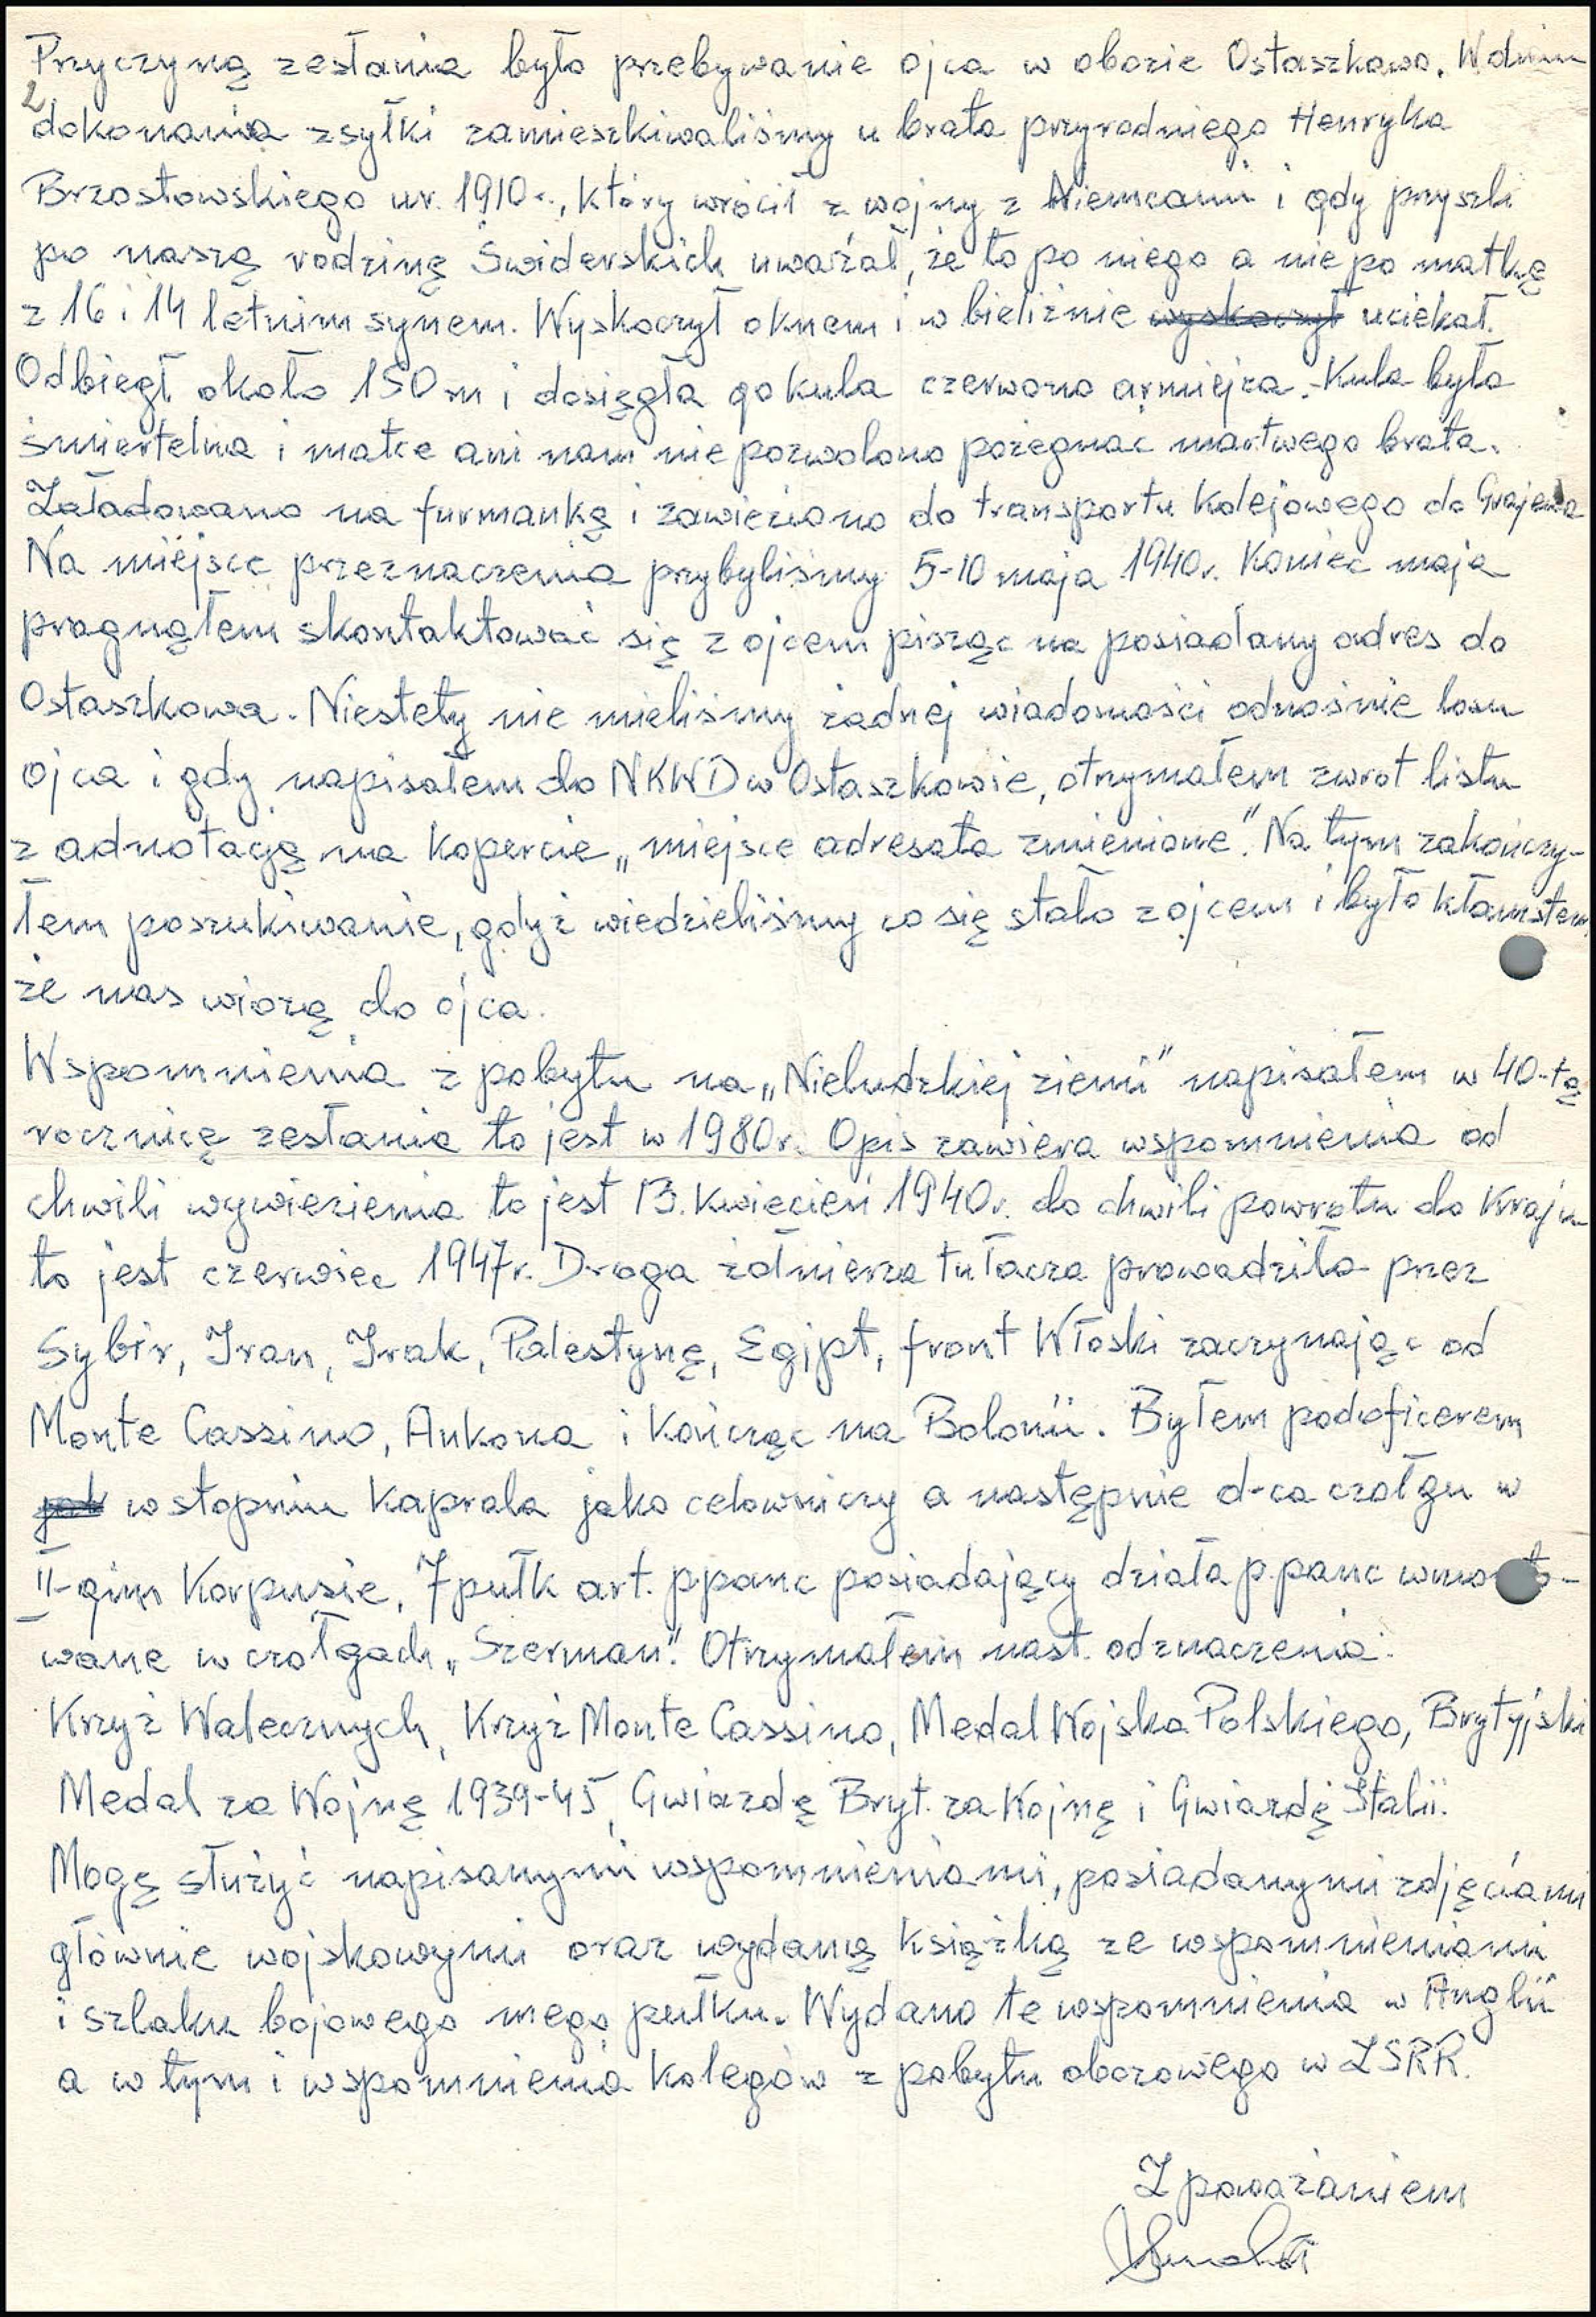 Przyczyną zesłania było przebywanie ojca w obozie Ostaszkowo. W dniu
2
dokonania zsyłki zamieszkiwaliśmy u brata przyrodniego Henryka
Brzostowskiego ur. 1910r., który wrócił z wojny z Niemcami i gdy przyszli
po naszą rodzinę Świderskich uważał, że to po niego a nie po matkę
z 16 i 14 letnim synem. Wyskoczył oknem i w bieliźnie wyskoczył uciekał.
Odbiegł około 150 m i dosięgła go kula czerwono armiejca. Kula była
śmiertelna i matce ani nam nie pozwolono pożegnać martwego brata.
Załadowano na furmankę i zawieziono do transportu kolejowego do Grajewa
Na miejsce przeznaczenia przybyliśmy 5-10 maja 1940r. Koniec maja
pragnąłem skontaktować się z ojcem pisząc na posiadany adres do
Ostaszkowa. Niestety nie mieliśmy żadnej wiadomości odnośnie losu
ojca i gdy napisałem do NKWD w Ostaszkowie, otrzymałem zwrot listu
z adnotacją na kopercie „miejsce adresata zmienione". Na tym zakończy-
łem poszukiwanie, gdyż wiedzieliśmy co się stało z ojcem i było kłamstem
że nas wiozą do ojca.
Wspomnienia z pobytu na „Nieludzkiej ziemi" napisałem w 40-tą
rocznicę zesłania to jest w 1980r. Opis zawiera wspomnienia od
chwili wywiezienia to jest 13. kwiecień 1940r. do chwili powrotu do kraju
to jest czerwiec 1947r. Droga żołnierza tułacza prowadziła przez
Sybir, Iran, Irak, Palestynę, Egipt, front Włoski zaczynając od
Monte Cassino, Ankona i kończąc na Bolonii. Byłem podoficerem
jak w stopniu kaprala jako celowniczy a następnie d-ca czołgu w
II-gim Korpusie, 7 pułk art. p.panc posiadający działa p.panc wmonto-
wane w czołgach „Szerman". Otrzymałem nast. odznaczenia:
Krzyż Walecznych, Krzyż Monte Cassino, Medal Wojska Polskiego, Brytyjski
Medal za Wojnę 1939-45, Gwiazdę Bryt. za Wojnę i Gwiazdę Italii.
Mogę służyć napisanymi wspomnieniami, posiadanymi zdjęciami
głównie wojskowymi oraz wydaną książką ze wspomnieniami
i szlaku bojowego mego pułku. Wydano te wspomnienia w Anglii
a w tym i wspomnienia kolegów z pobytu obozowego w ZSRR.
Z poważaniem